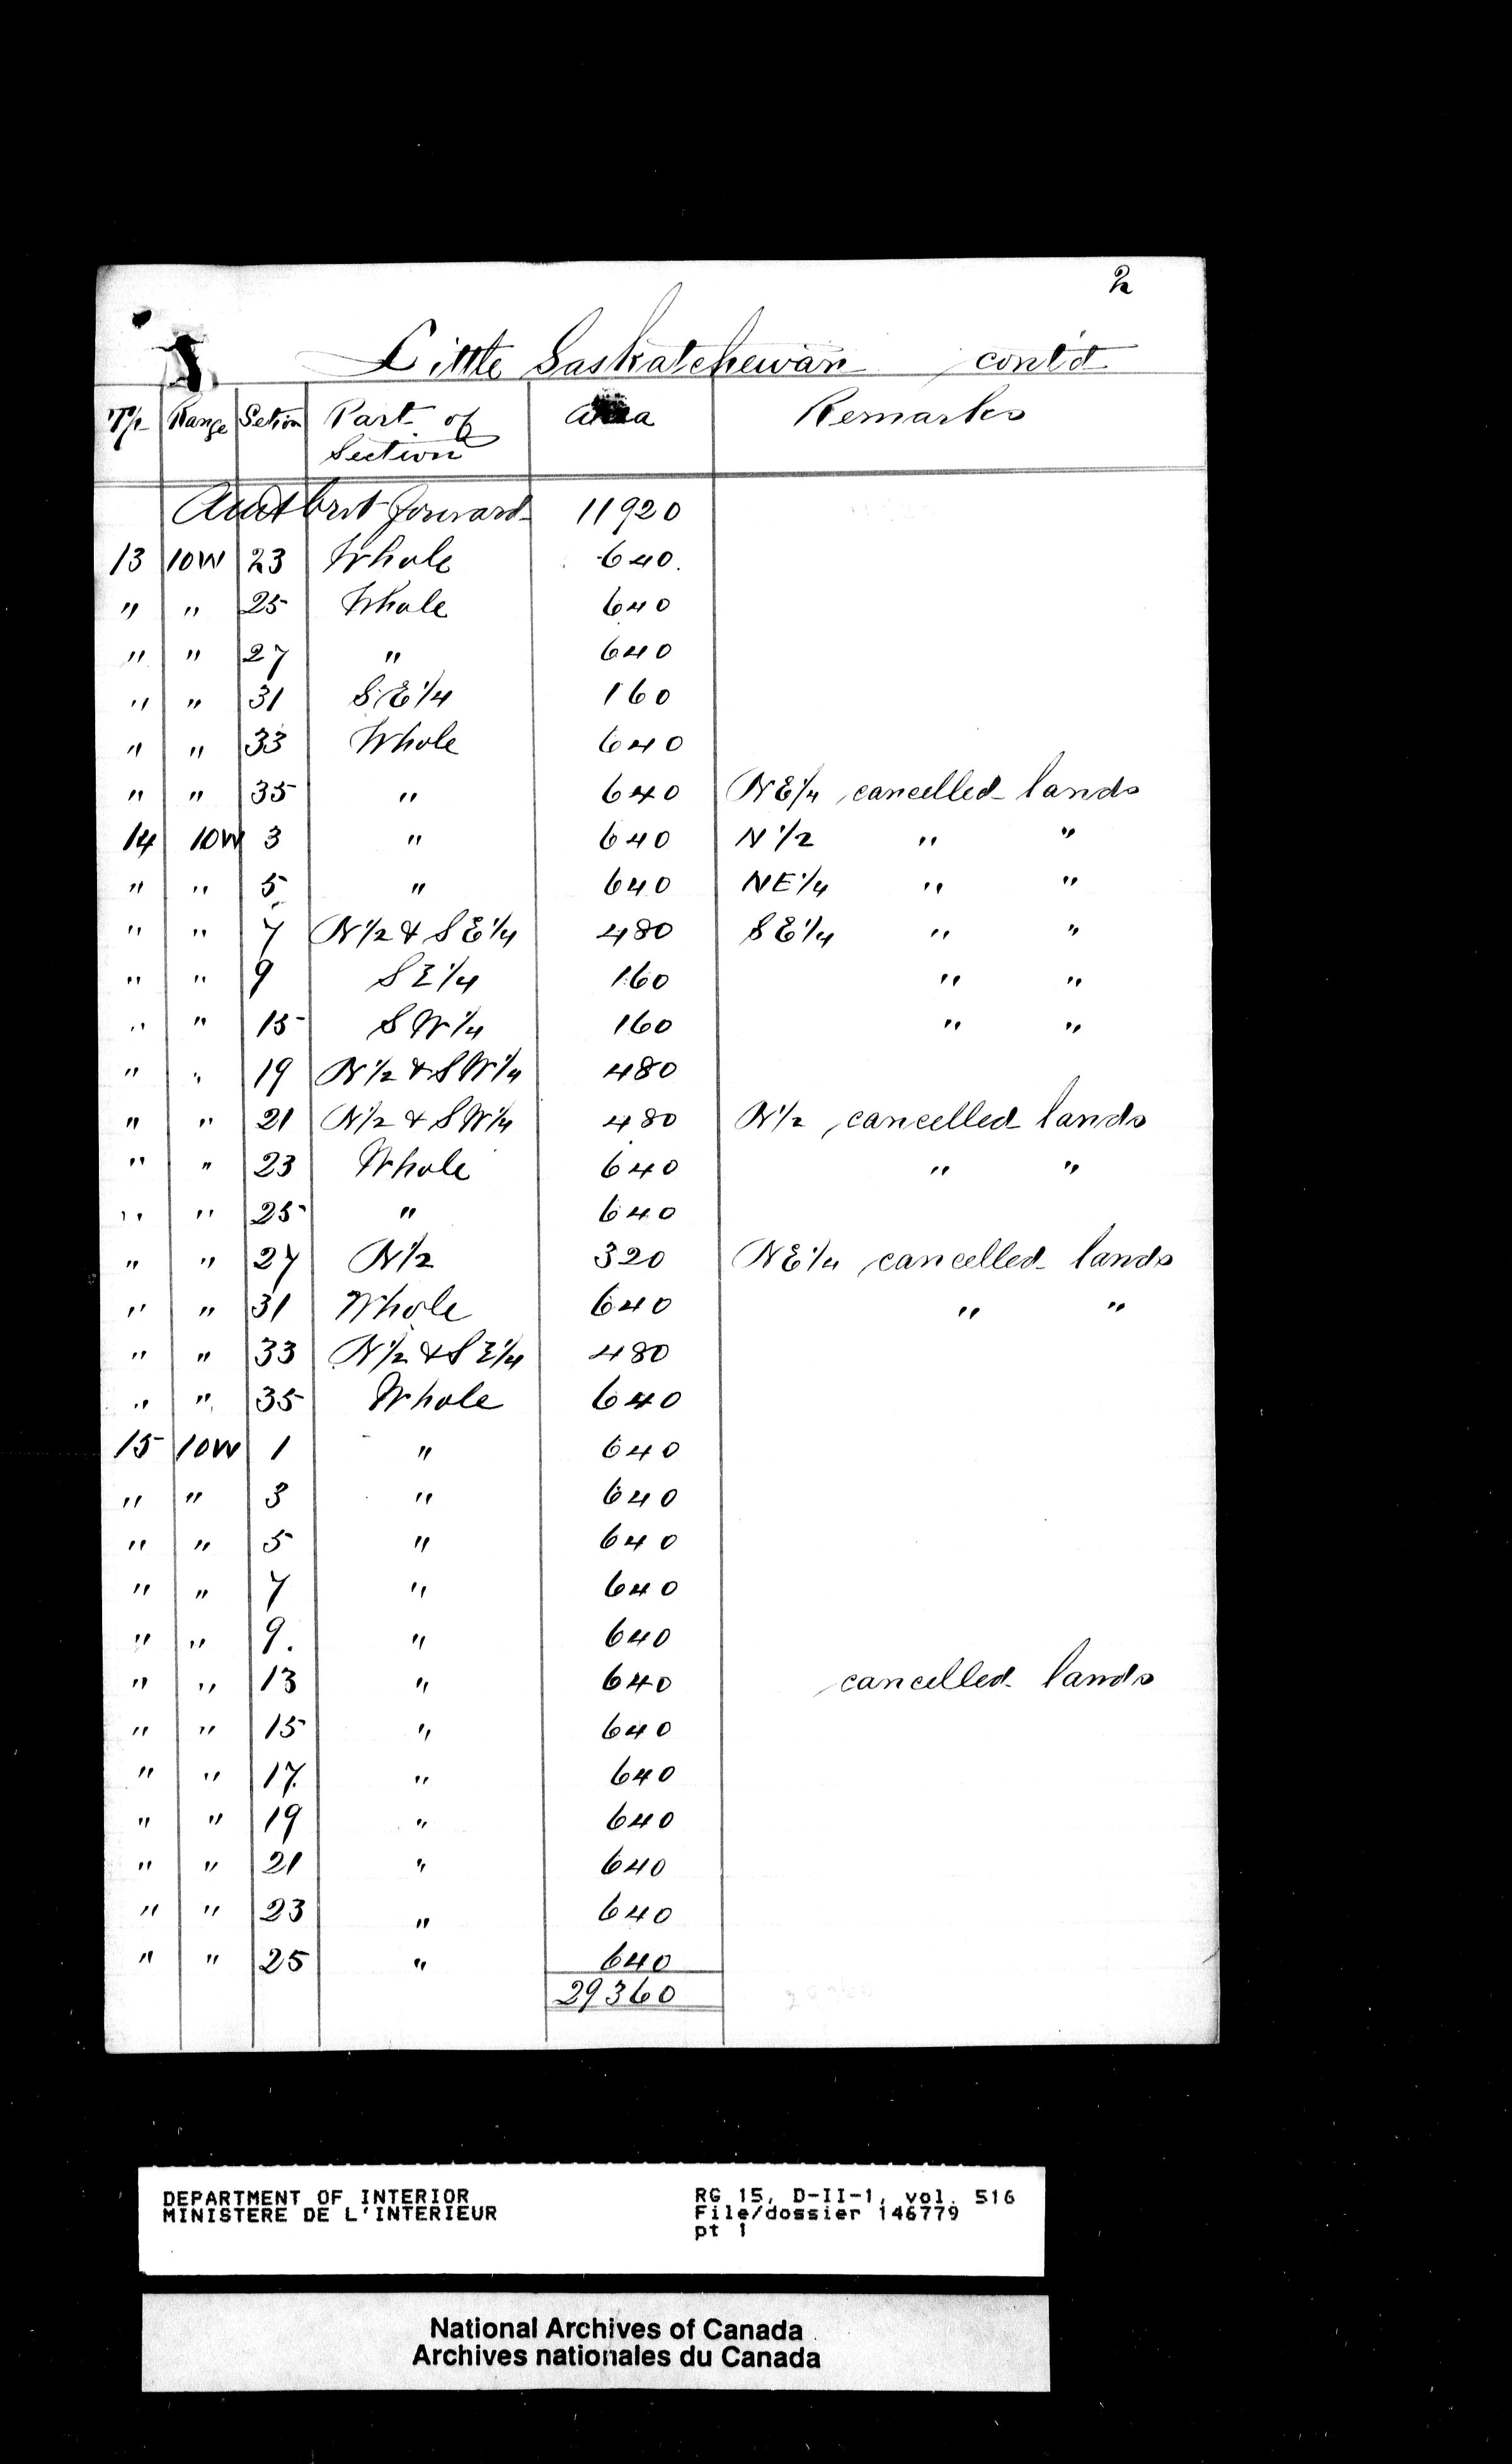 2
Little Saskatchewan cont'd
Tp Range Setion Part of Section Area Remarks
Amt brt forward 11920
13 10W 23 Whole 640.
" " 25 Whole 640
" " 27 " 640
" " 31 S.E 1/4 160
" " 33 Whole 640
" " 35 " 640 NE 1/4 cancelled lands
14 10W 3 " 640 N 1/2 " "
" " 5 " 640 NE 1/4 " "
" " 7 N 1/2 & S E 1/4 480 S E 1/4 " "
" " 9 S E 1/4 160 " "
" " 15 S W 1/4 160 " "
" " 19 N 1/2 & S W 1/4 480
" " 21 N 1/2 & S W 1/4 480 N 1/2 cancelled lands
" " 23 Whole 640 " "
" " 25 " 640
" " 27 N 1/2 320 NE 1/4 cancelled lands
" " 31 Whole 640 " "
" " 33 N 1/2 & S E 1/4 480
" " 35 Whole 640
15 10W 1 " 640
" " 3 " 640
" " 5 " 640
" " 7 " 640
" " 9. " 640
" " 13 " 640 cancelled lands
" " 15 " 640
" " 17. " 640
" " 19 " 640
" " 21 " 640
" " 23 " 640
" " 25 " 640
29360
DEPARTMENT OF INTERIOR
MINISTERE DE L'INTERIEUR
RG 15, D-II-1, vol. 516
File/dossier 146779
pt 1
National Archives of Canada
Archives nationales du Canada